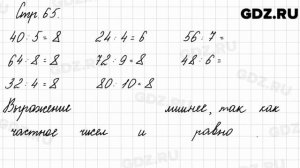 GDZ.RU
Стр. 65.
40 : 5 = 8 24 : 4 = 6 56 : 7 =
64 : 8 = 8 72 : 9 = 8 48 : 6 =
32 : 4 = 8 80 : 10 = 8
Выражение лишнее, так как
частное чисел и равно .
GDZ.RU